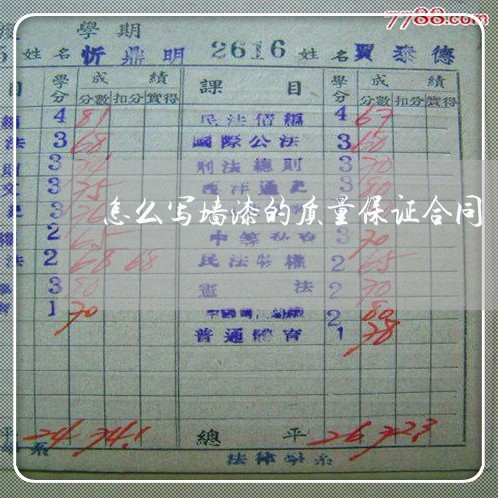 7788.com
學期
姓名 忻鼎明 2616 姓名 賈泰德
目 學分 成績 課目 學分 成績
分數 扣分 實得 分數 扣分 實得
4 81 民法債編 4 67
法 3 68 國際公法 3 60
3 刑法總則 3 70
3 75 西洋通史 3 80
怎么写墙漆的质量保证合同
2 65 3 70
法 2 68 68 民法物權 2 65
3 80 憲法 2 70
1 70 2 80
普通體育 1 78
平 24 74.1 總平 26 72.3
系 法律學系